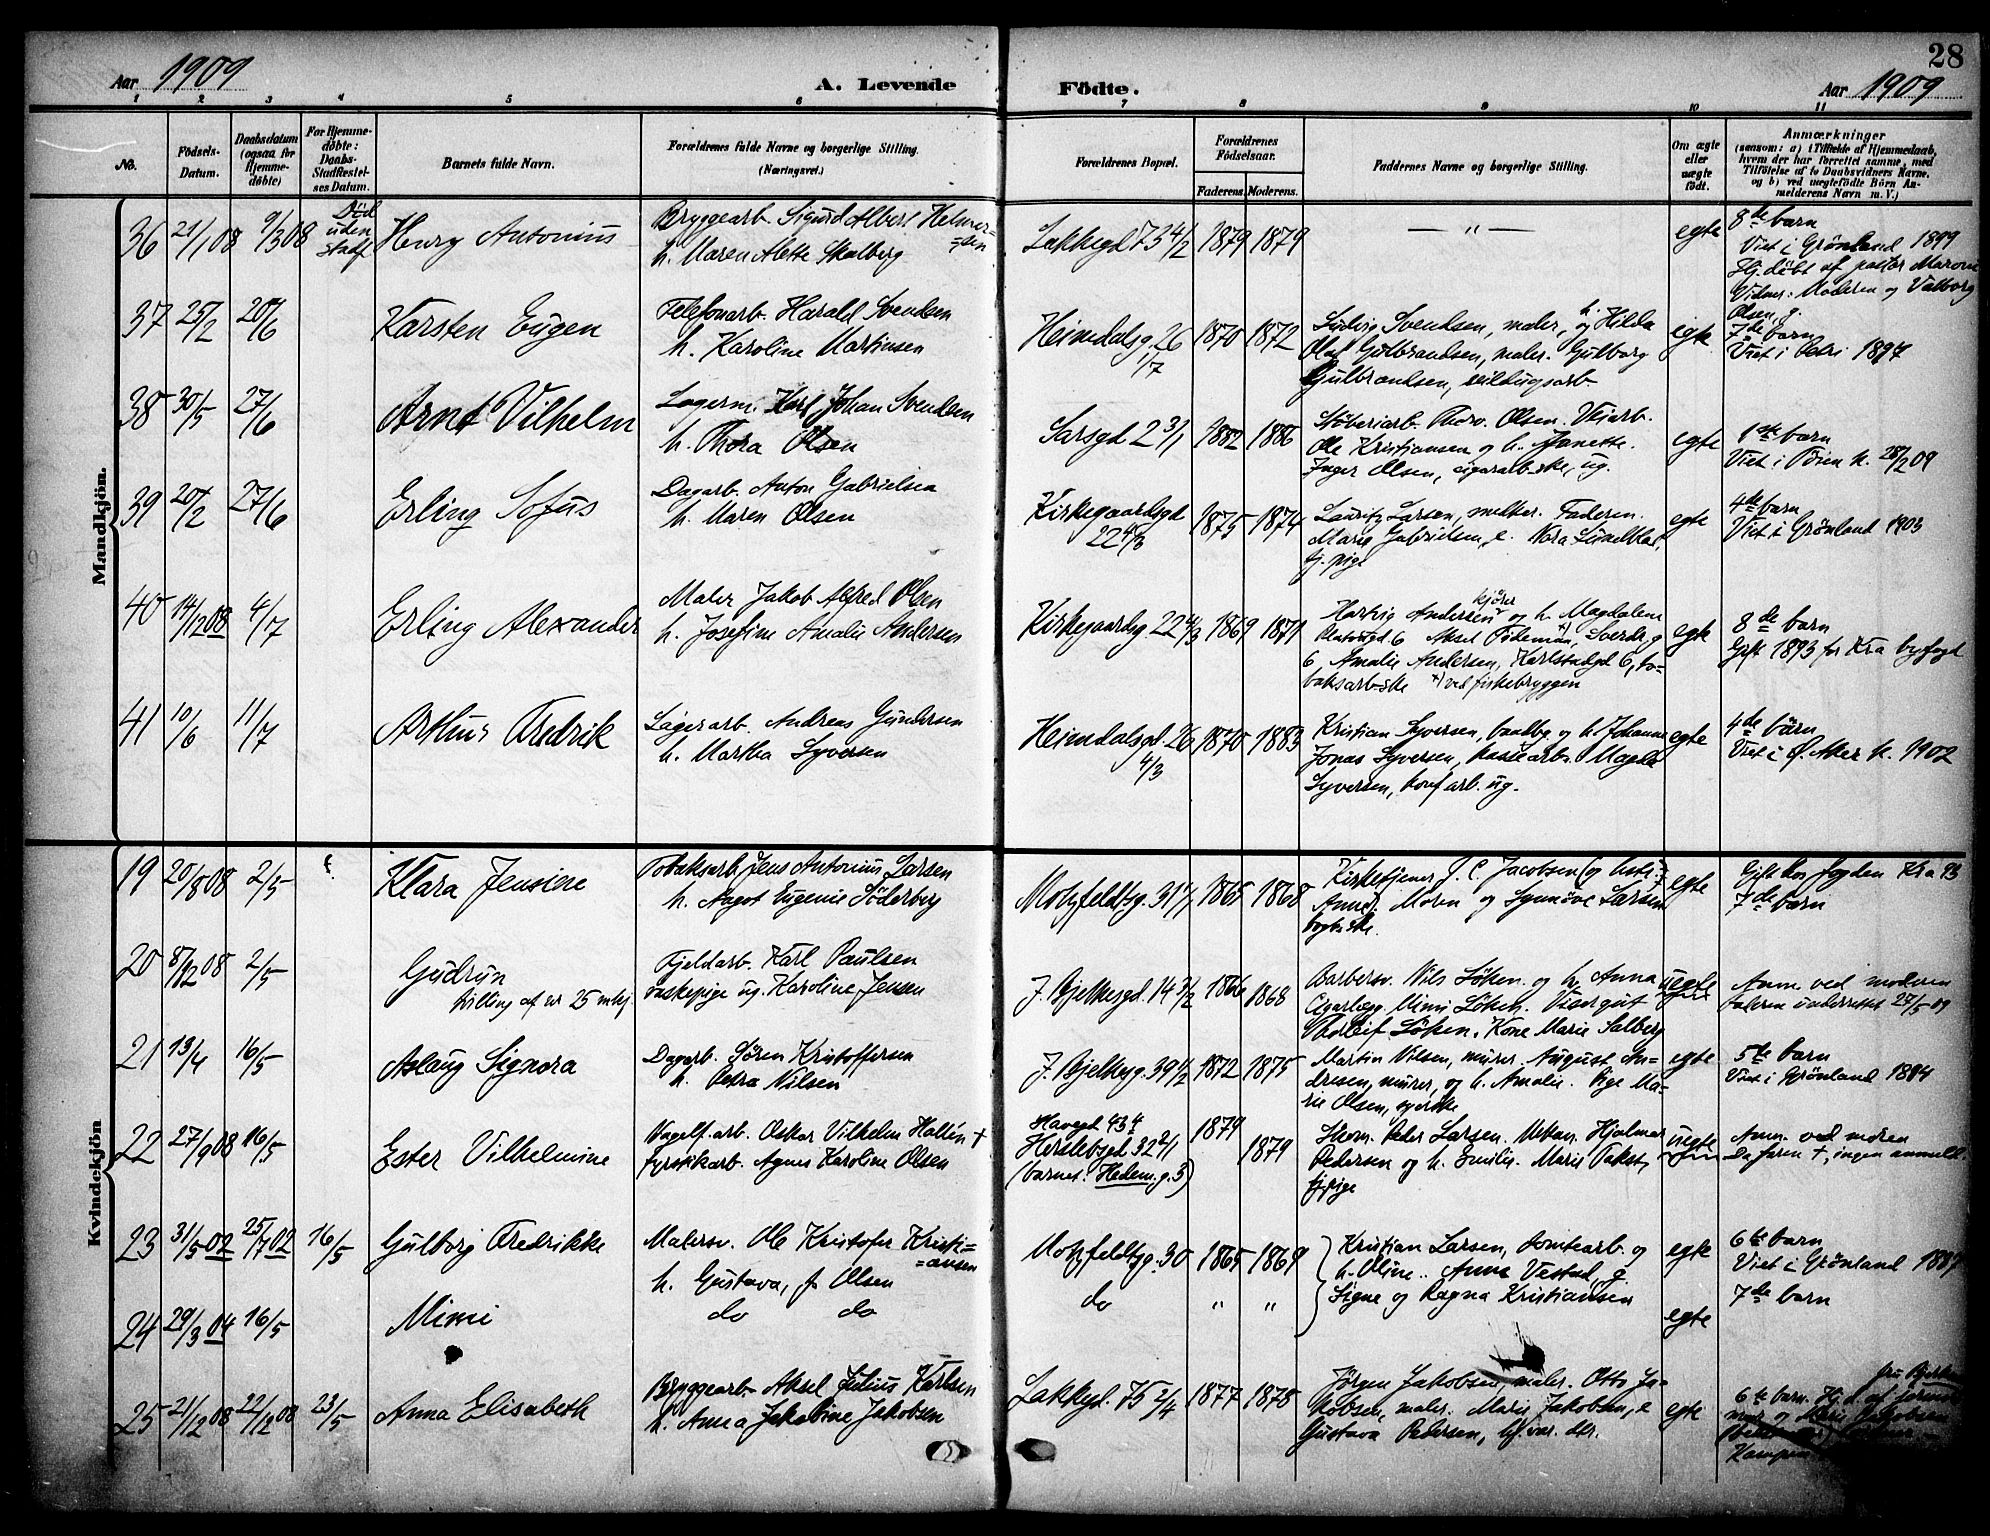 28
Aar 1909 A. Levende Födte. Aar 1909
1 2 3 4 5 6 7 8 9 10 11
No.
Födsels-
Datum.
Daabsdatum
(ogsaa for
Hjemme-
döbte)
For Hjemme-
döbte:
Daabs-
Stadfæstel-
ses Datum.
Barnets fulde Navn.
Forældrenes fulde Navne og borgerlige Stilling.
(Næringsvei.)
Forældrenes Bopæl.
Forældrenes
Födselsaar.
Faderens. Moderens.
Faddernes Navne og borgerlige Stilling.
Om ægte
eller
uægte
födt.
Anmærkninger
(saasom: a) i Tilfælde af Hjemmedaab,
hvem der har forrettet samme, med
Tilföielse af to Daabsvidners Navne,
og b) ved uægtefödte Börn An-
melderens Navn m. V.)
Mandkjön.
36 21/1 08 9/3 08 Död
uden
stadf
Henry Antonius
Bryggearb. Sigurd Albert Helmer-
=sen
h. Maren Alette Skalberg
Lakkegd 73 4/2 1879 1879 — „ — egte
8de barn
Viet i Grönland 1899
Hj.döbt af pastor
Vidner: Moderen og Valborg
Olsen, g.
37 25/2 20/6 Karsten Eugen
Telefonarb. Harald Svendsen
h. Karoline Martinsen
Heimdalsg. 26
1/7
1870 1872
Ludvig Svendsen, maler, og h. Hilda
Olaf Gulbrandsen, maler. Gulborg
Gulbrandsen, seildugsarb
egte
7de barn
Viet i Petri 1897
38 30/5 27/6 Arnt Vilhelm
Lagerm. Karl Johan Svendsen
h. Thora Olsen
Sarsgd 2 3/1 1882 1886
Støberiarb. Thorv. Olsen. Veiarb.
Ole Kristiansen og h. Janette.
Inger Olsen, cigararb-ske, ug.
egte
1ste barn
Viet i Töien k. 28/2 09
39 20/2 27/6 Erling Sofus
Dagarb. Anton Gabrielsen
h. Maren Olsen
Kirkegaardsgd
22 4/3
1875 1874
Lauritz Larsen, Faderen.
Marie Gabrielsen, e. Nora Lundblad,
tj. pige
egte
4de barn
Viet i Grönland 1903
40 14/12 08 4/7 Erling Alexander
Maler Jakob Alfred Olsen
h. Josefine Amalie Andersen
Kirkegaardsg 22 4/3 1869 1871
Hartvig Andersen kjører og h. Magdalene
6 Aksel Tidemann x), Sverdr. g
6, Amalie Andersen, Karlstadgd 6, to-
baksarb-ske x) ved fiskebryggen
egte
8de barn
Gift 1893 for Kra byfogd
41 10/6 11/7 Arthur Fredrik
Lagerarb. Andreas Gundersen
h. Martha Syversen
Heimdalsgd. 26
4/3
1870 1883
Kristian Syversen, og h. Johanne
Jonas Syversen, kassearb. Magda
Syversen, konf.arb. ug.
egte
4de barn
Viet i Ø. Aker k. 1902
Kvindekjön
19 20/8 08 2/5 Klara Jensine
Tobaksarb. Jens Antonius Larsen
h. Aagot Eugenie Söderberg
Motzfeldtsg. 31 1/1 1865 1868
Kirketjener J. C. Jacobsen (og hstr.
Anna). Moren og Synnöve Larsen
bogb.ske.
egte
Gift hos fogden Kra 93
7de barn
20 8/12 08 2/5 Gudrun
tvilling af nr 25 mkj
Fjeldarb. Karl Paulsen
vaskepige ug. Karoline Jensen
J. Bjelkesgd. 14 3/2 1866 1868
Barbersv. Nils Löken og h. Anna
Cigarlæg. Mimi Löken.
Thorleif Löken. Kone Marie Salberg
uegte
Anm. ved moderen
faderen underrettet 27/5 09
21 13/4 16/5 Aslaug Signora
Dagarb. Sören Kristoffersen
h. Petra Nilsen
J. Bjelkesg. 39 4/2 1872 1875
Martin Nilsen, murer. August An-
dresen, murer, og h. Amalie. Pige Ma-
rie Olsen, syerske
egte
5te barn
Viet i Grönland 1894
22 27/9 08 16/5 Ester Vilhelmine
Vognf. arb. Oskar Vilhelm Hallén +
fyrstikarb. Agnes Karoline Olsen
Havegd 43 4
Herslebsgd 32 2/1
(barnet: Hedem.g. 3)
1879 1879
Skom. Peder Larsen. Mekan. Hjalmar
Pedersen og h. Emilie. Marie Vakst,
tj.pige
uegte
Anm. ved moren
Da faren +, ingen anmeld.
23 31/5 02 25/7 02 16/5 Gulborg Fredrikke
Malersv. Ole Kristofer Kristi=
=ansen
h. Gustava, f. Olsen
Motzfeldtsg. 30 1865 1869
Kristian Larsen, tomtearb. og
h. Oline. Anna Vestad, g.
Signe og Ragna Kristiansen
egte
6te barn
Viet i Grönland 1887
24 29/3 04 16/5 Mimi
do do do „ „ egte
7de barn
25 21/12 08 22/12 08 23/5 Anna Elisabeth
Bryggearb. Aksel Julius Karlsen
h. Anna Jakobine Jakobsen
Lakkegd. 75 2/4 1877 1878
Jörgen Jakobsen, maler. Otto Ja-
kobsen, maler. Marie Jakobsen, e
Gustava Pedersen, hf. var. dtr.
egte
6te barn. Hj.d. af jorme-
mor fru Bjerke
og Marie Jakobsen
Kampen